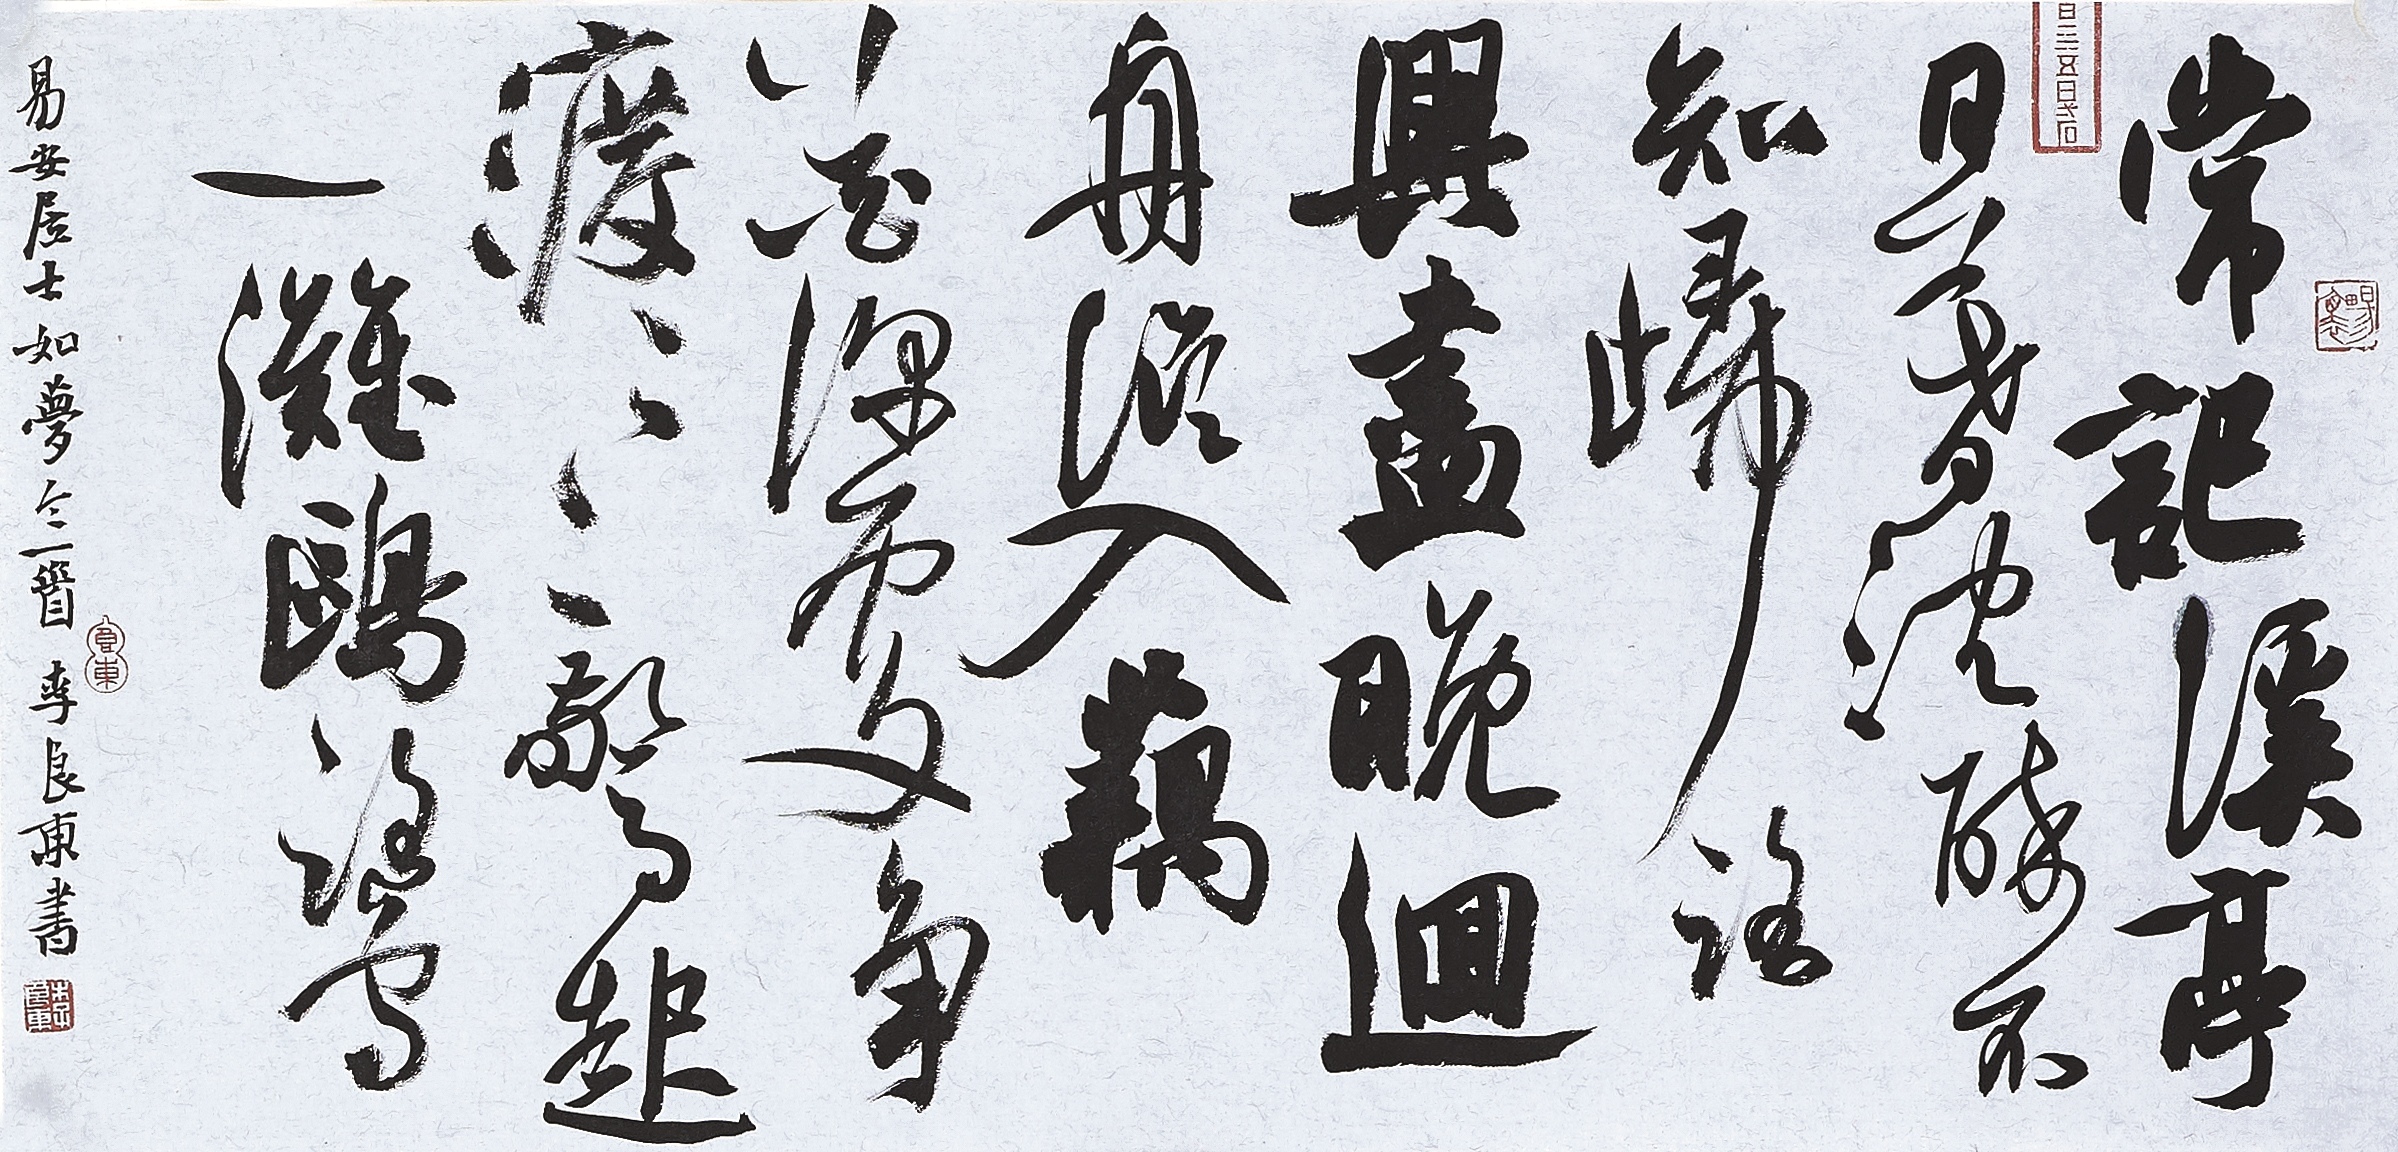 常記溪亭
日暮沈醉不
知歸路
興盡晚迴
舟誤入藕
花深處争
渡〻〻驚起
一灘鷗鷺
易安居士如夢令一首 李良東書